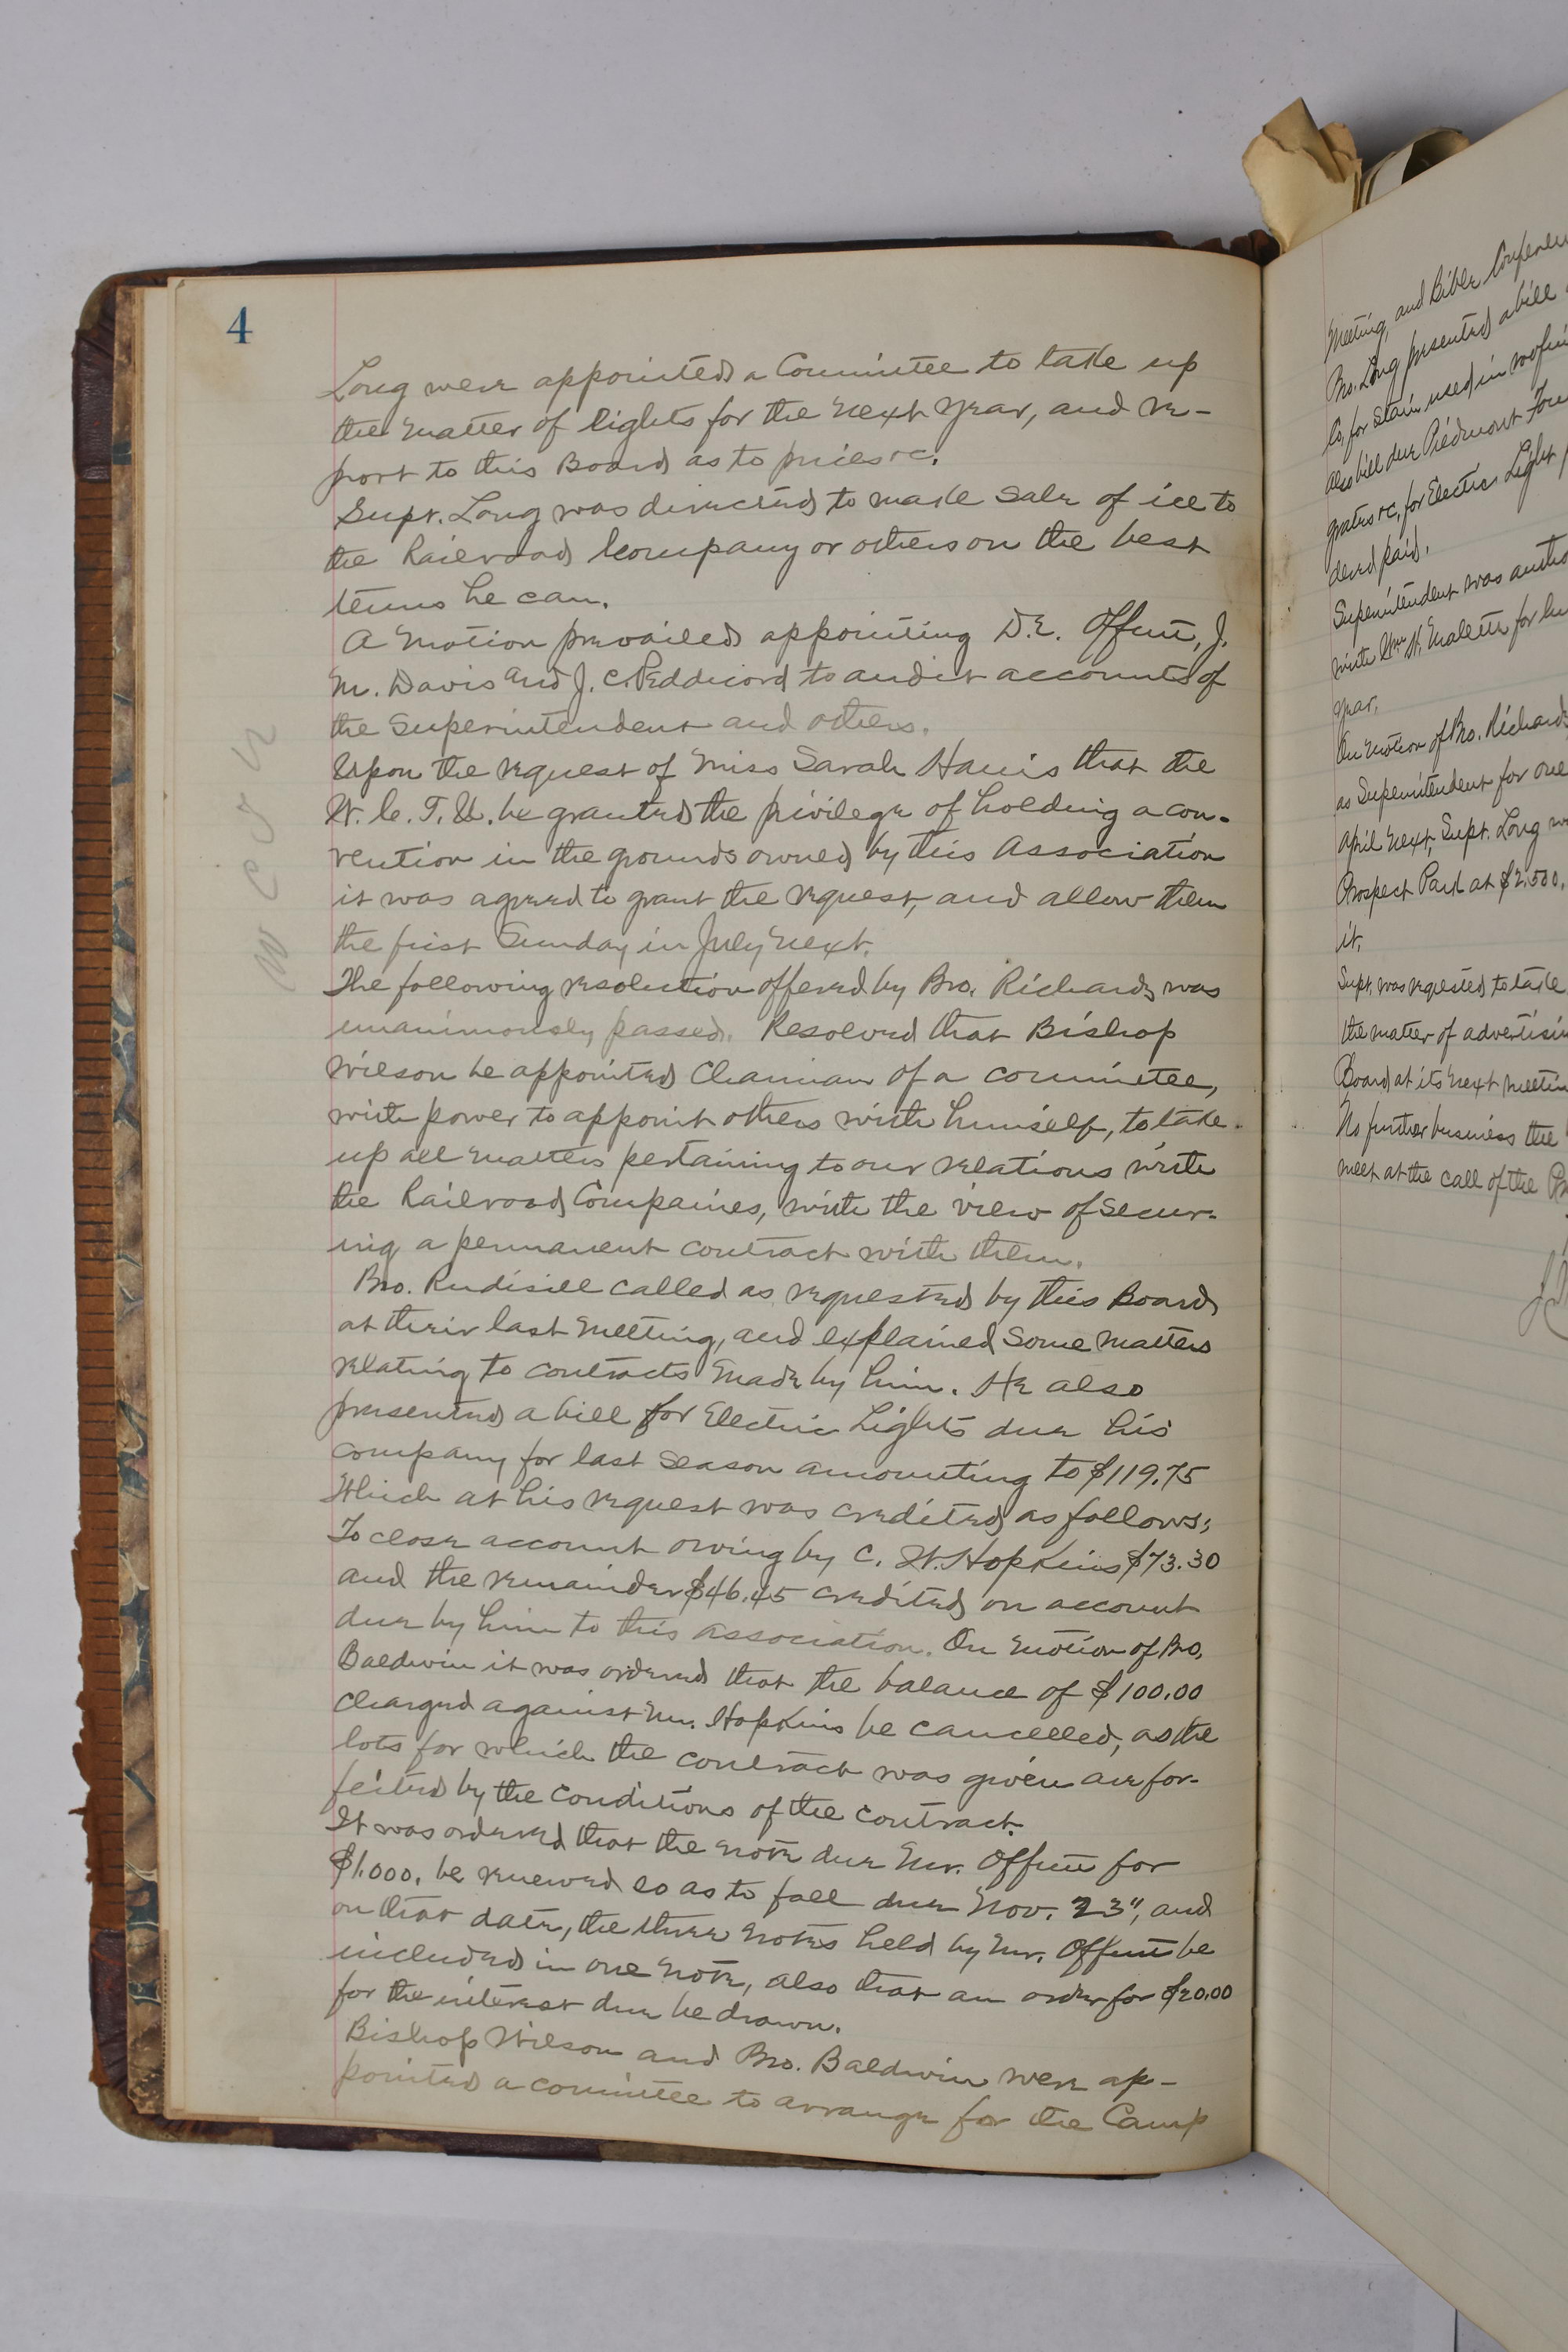 4
Long were appointed a Committee to take up
the matter of lights for the next year, and re-
port to this Board as to prices &c.
Supt. Long was directed to make sale of ice to
the Railroad Company or others on the best
terms he can.
A motion prevailed appointing D.E. Offutt, J.
M. Davis and J. C. Peddicord to audit accounts of
the Superintendent and others.
Upon the request of Miss Sarah Harris that the
W. C. T. U. be granted the privilege of holding a con-
vention in the grounds owned by this Association
it was agreed to grant the request, and allow them
the first Sunday in July next.
W C T U
The following resolution offered by Bro. Richards was
unanimously passed. Resolved that Bishop
Wilson be appointed Chairman of a committee,
with power to appoint others with himself, to take
up all matters pertaining to our relations with
the Railroad Companies, with the view of secur-
ing a permanent contract with them.
Bro. Rudisill called as requested by this Board
at their last meeting, and explained some matters
relating to contracts made by him. He also
presented a bill for Electric Lights due his
company for last season amounting to $119.75
Which at his request was credited as follows;
To close account owing by C. W. Hopkins $73.30
and the remainder $46.45 credited on account
due by him to this association. On motion of Bro.
Baldwin it was ordered that the balance of $100.00
charged against Mr. Hopkins be cancelled, as the
lots for which the contract was given are for-
feited by the conditions of the contract.
It was ordered that the note due Mr. Offutt for
$1.000. be renewed so as to fall due Nov. 23", and
on that date, the three notes held by Mr. Offutt be
included in one note, also that an order for $20.00
for the interest due be drawn.
Bishop Wilson and Bro. Baldwin were ap-
pointed a comittee to arrange for the Camp
Meeting, and Bible
Bro. Long presented a bill
Co, for stain used in
also bill due Piedmont
grates &c, for Electric Light
dered paid.
Superintendent was
with Wm H. for
year.
On motion of Bro. Richards
as Superintendent for one
April next, Supt. Long
Prospect Park at $2.500.
it.
Supt. was requested to take
the matter of
Board at its next
No further business the
meet at the call of the